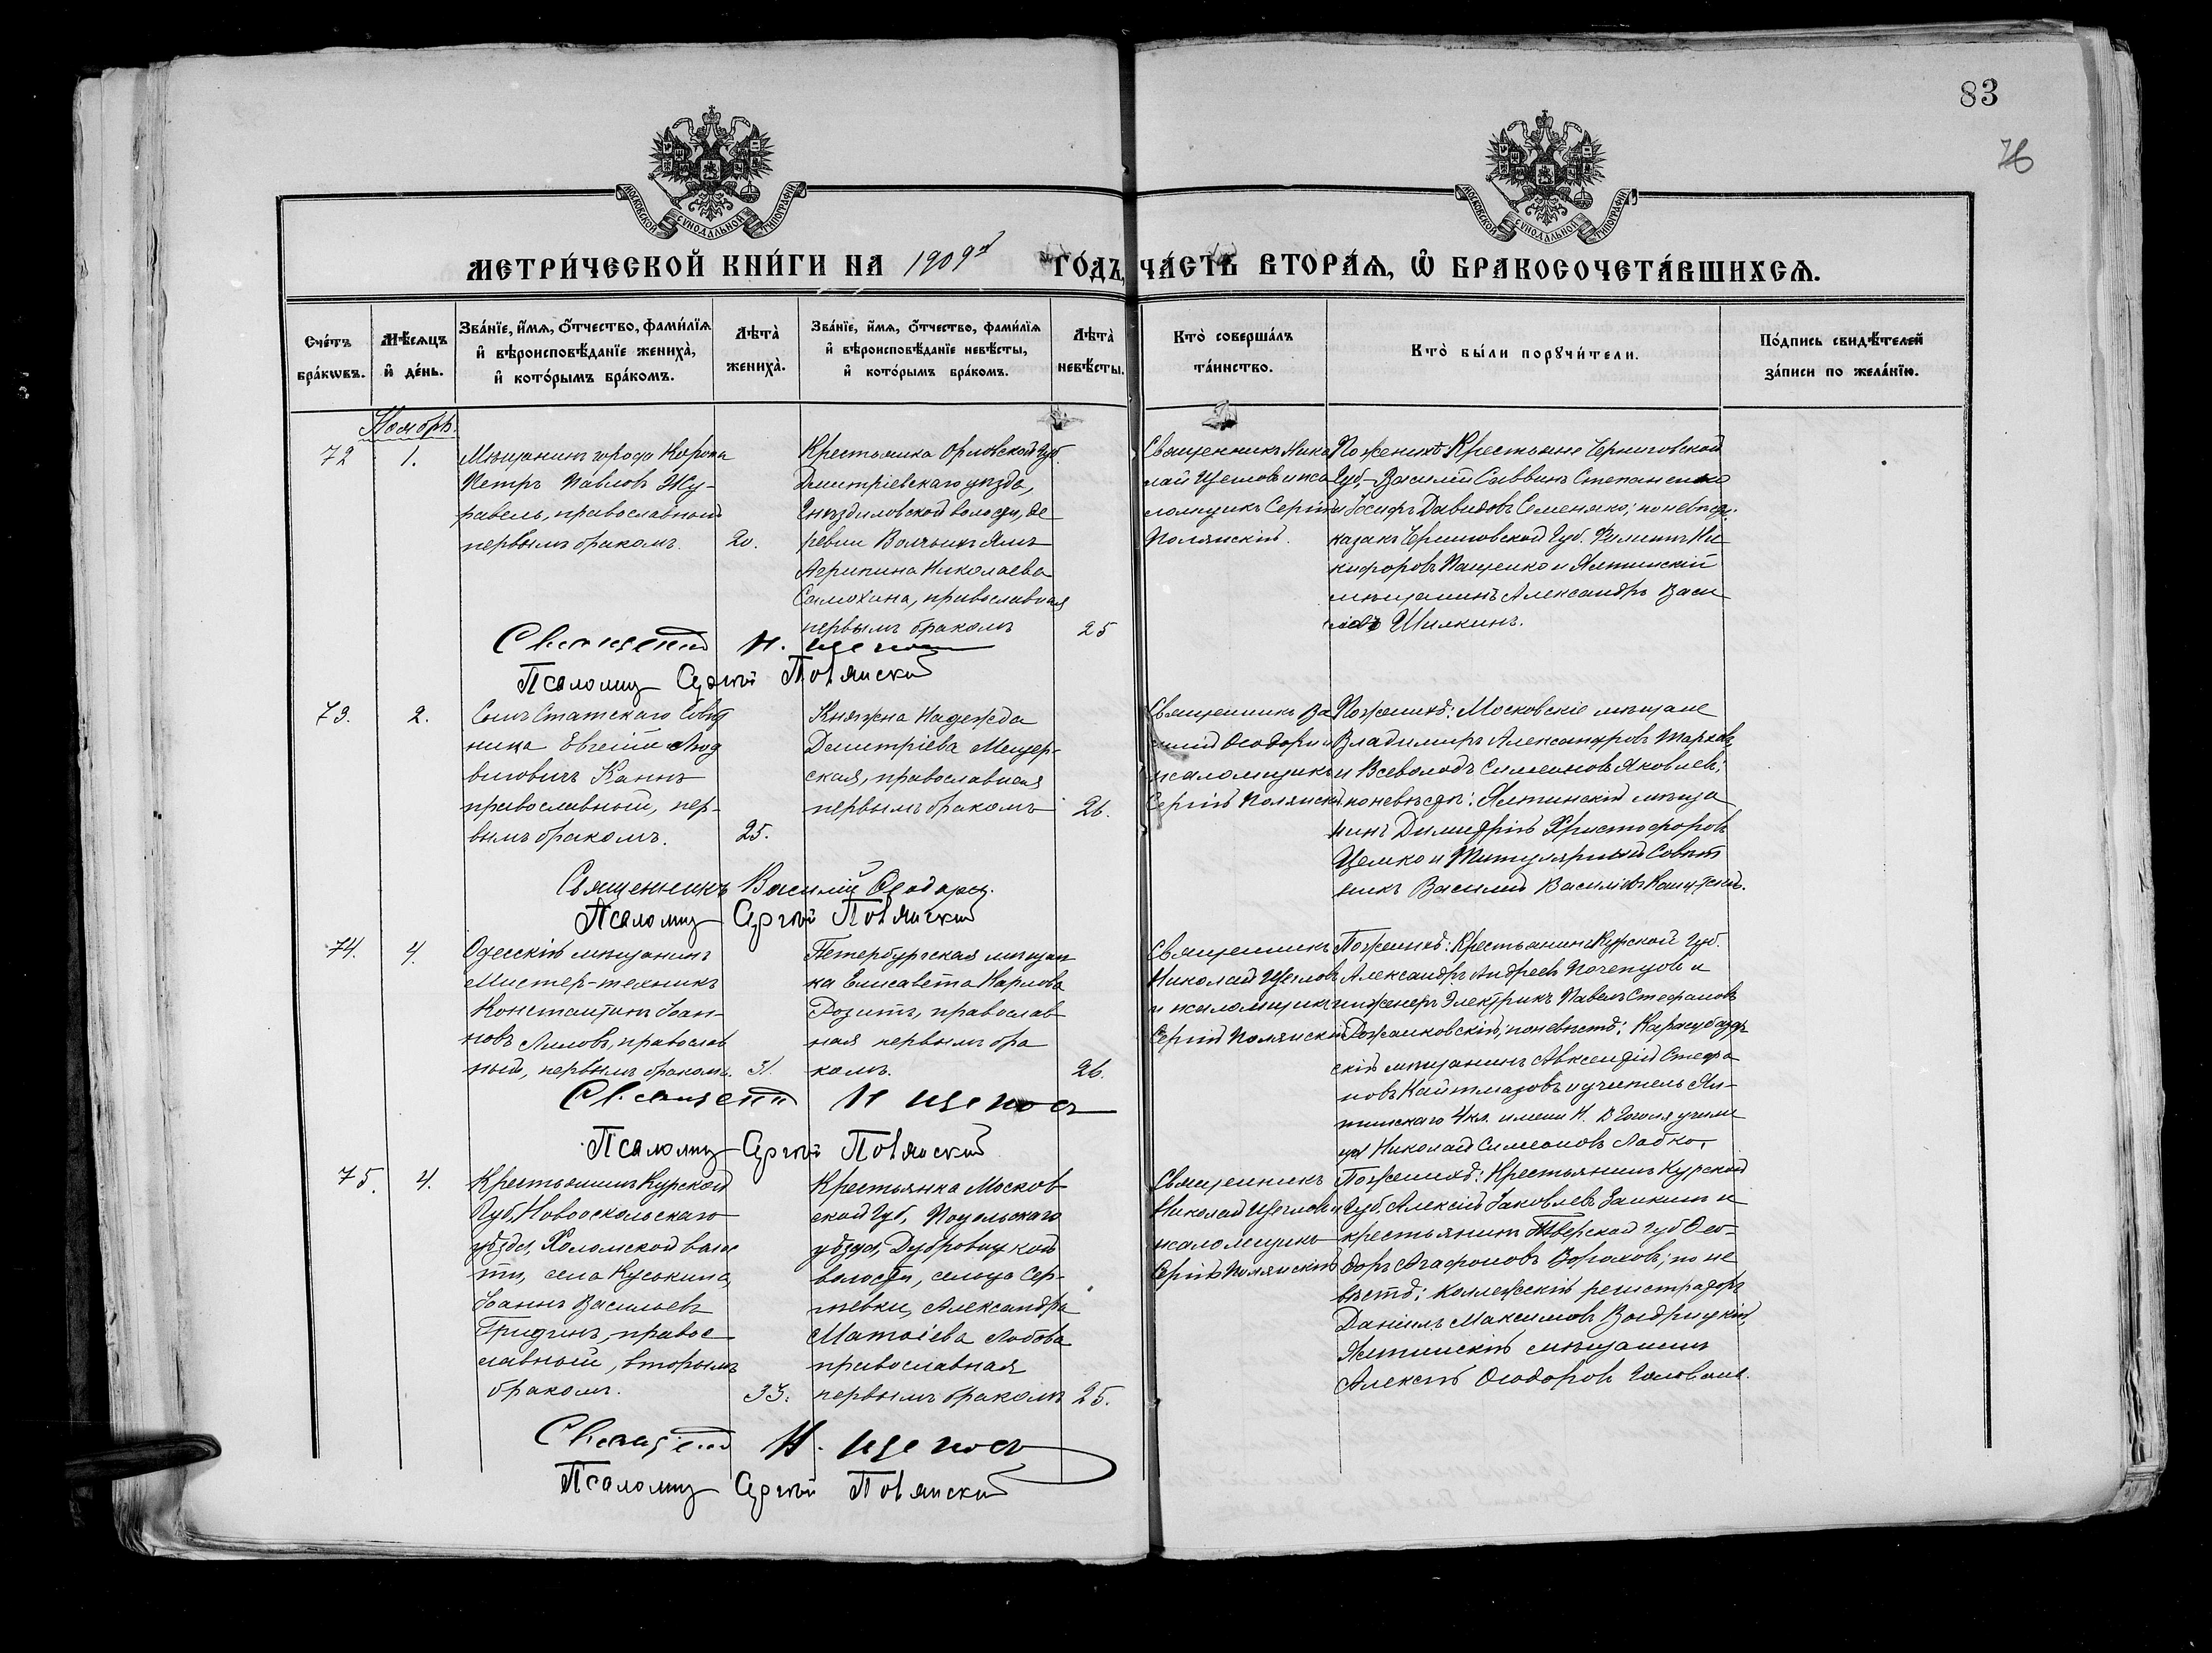 83
76
МОСКОВСКОЙ СѴНОДАЛЬНОЙ ТИПОГРАФІИ
МОСКОВСКОЙ СѴНОДАЛЬНОЙ ТИПОГРАФІИ
МЕТРИ́ЧЕСКОЙ КНИ́ГИ НА 1909й ГО́ДЪ, ЧА́СТЬ ВТОРА́Ѧ, Ѽ БРАКОСОЧЕТА́ВШИХСѦ.
Сче́тъ
бра́кѡвъ.
Мѣ́сѧцъ
и҆ де́нь.
Зва́нїе, и҆́мѧ, ѻ҆́тчество, фами́лїѧ
и҆ вѣроисповѣ́данїе жениха̀,
и҆ кото́рымъ бра́комъ.
Лѣ́та̀
жениха̀.
Зва́нїе, и҆́мѧ, ѻ҆́тчество, фами́лїѧ
и҆ вѣроисповѣ́данїе невѣ́сты,
и҆ кото́рымъ бра́комъ.
Лѣ́та̀
невѣ́сты.
Кто̀ соверша́лъ
та́инство.
Кто̀ бы́ли порꙋчи́тели.
По́дпись свидѣ́телей
за́писи по жела́нїю.
Ноябрь.
72
1.
Мѣщанинъ города Коропа
Петръ Павловъ Жу-
равель, православный
первымъ бракомъ.
20.
Крестьянка Орловской губ.
Дмитріевскаго уѣзда,
Гнѣздиловской волости, де
ревни Волчьихъ Ямъ
Агрипина Николаева
Самохина, православная
первымъ бракомъ
25
Священникъ Нико
лай Щегловъ и пса
ломщикъ Сергій
Полянскій.
По женихѣ: Крестьяне Черниговской
Губ.- Василій Саввинъ Степаненко
и Іосифъ Давидовъ Семеняко; по невѣстѣ:
казакъ Черниговской Губ. Филиппъ Ни
кифоровъ Пащенко и Ялтинскій
мѣщанинъ Александръ Васи
льевъ Шилкинъ.
Священникъ Н. Щегловъ
Псаломщ Сергій Полянскій
73.
2.
Сынъ Статскаго Совѣт
ника Евгеній Люд
виговичъ Каннъ
православный, пер-
вымъ бракомъ.
25.
Княжна Надежда
Дмитріева Мещер-
ская, православная
первымъ бракомъ
26.
Священникъ Ва
силій Ѳеодори и
псаломщикъ
Сергій Полянскій
По женихѣ: Московскіе мѣщане
Владимиръ Александровъ
и Всеволодъ Симеоновъ Яковлевъ;
по невѣстѣ: Ялтинскій мѣща
нинъ Димитрій Христофоровъ
Цемко и Титулярный Совѣт
никъ Василій Васильевъ
Священникъ Василій
Псаломщ Сергій Полянскій
74.
4.
Одесскій мѣщанинъ
Мистер-техникъ
Константинъ Іоан-
новъ православ
ный, первымъ бракомъ.
31.
Петербургская мѣщан
ка Елисавета Карлова
Розитъ, православ
ная первымъ бра
комъ.
26.
Священникъ
Николай Щегловъ
и псаломщикъ
Сергій Полянскій
По женихѣ: Крестьянинъ Курской Губ.
Александръ Андреевъ Поченцовъ и
инженеръ Электрикъ Павелъ Стефановъ
Рожанковскій; по невѣстѣ: Карасубазар
скій мѣщанинъ Авксентій Стефа
новъ Кайтмазовъ и учитель Ял-
тинскаго 4 кл. имени Н. В. Гоголя учили
ща Николай Симеоновъ
Священникъ Н Щегловъ
Псаломщ Сергій Полянскій
75.
4.
Крестьянинъ Курской
Губ, Новооскольскаго
уѣзда, Холомской волос
ти, села Куськина,
Іоаннъ Васильевъ
Гридинъ, правос
лавный, вторымъ
бракомъ.
33.
Крестьянка Москов
ской Губ, Подольскаго
уѣзда, Дубровицкой
волости, сельца Сер-
тьевки, Александра
Матѳіева Лобова
православная
первымъ бракомъ
25.
Священникъ
Николай Щегловъ и
псаломщикъ
Сергій Полянскій
По женихѣ: Крестьянинъ Курской
Губ. Алексій Іаковлевъ Заикинъ и
крестьянинъ Тверской Губ Ѳео-
доръ Агафоновъ по не
вѣстѣ: коллежскій регистраторъ
Даніилъ Максимовъ
Ялтинскій мѣщанинъ
Алексѣй Ѳеодоровъ
Священникъ Н. Щегловъ
Псаломщ Сергій Полянскій